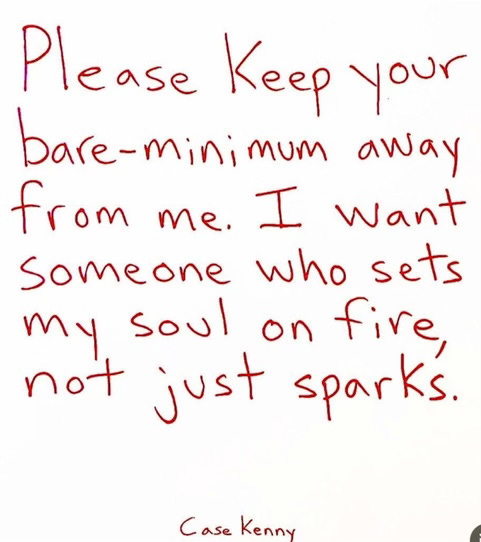 Please Keep your
bare-minimum away
from me. I want
someone who sets
my soul on fire,
not just sparks.
Case Kenny